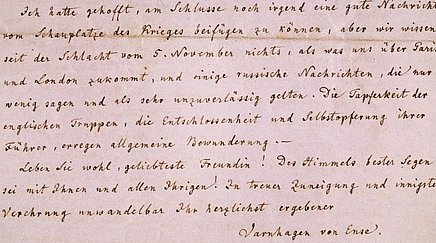 Ich hatte gehofft, am Schlusse noch irgend eine gute Nachricht
vom Schauplatze des Krieges beifügen zu können, aber wir wissen
seit der Schlacht vom 5. November nichts, als was uns über Paris
und London zukommt, und einige russische Nachrichten, die nur
wenig sagen und als sehr unzuverlässig gelten. Die Tapferkeit der
englischen Truppen, die Entschlossenheit und Selbstopferung ihrer
Führer, erregen allgemeine Bewunderung. —
Leben Sie wohl, geliebteste Freundin! Des Himmels bester Segen
sei mit Ihnen und allen Ihrigen! In treuer Zuneigung und innigster
Verehrung unwandelbar Ihr herzlichst ergebener
Varnhagen von Ense.